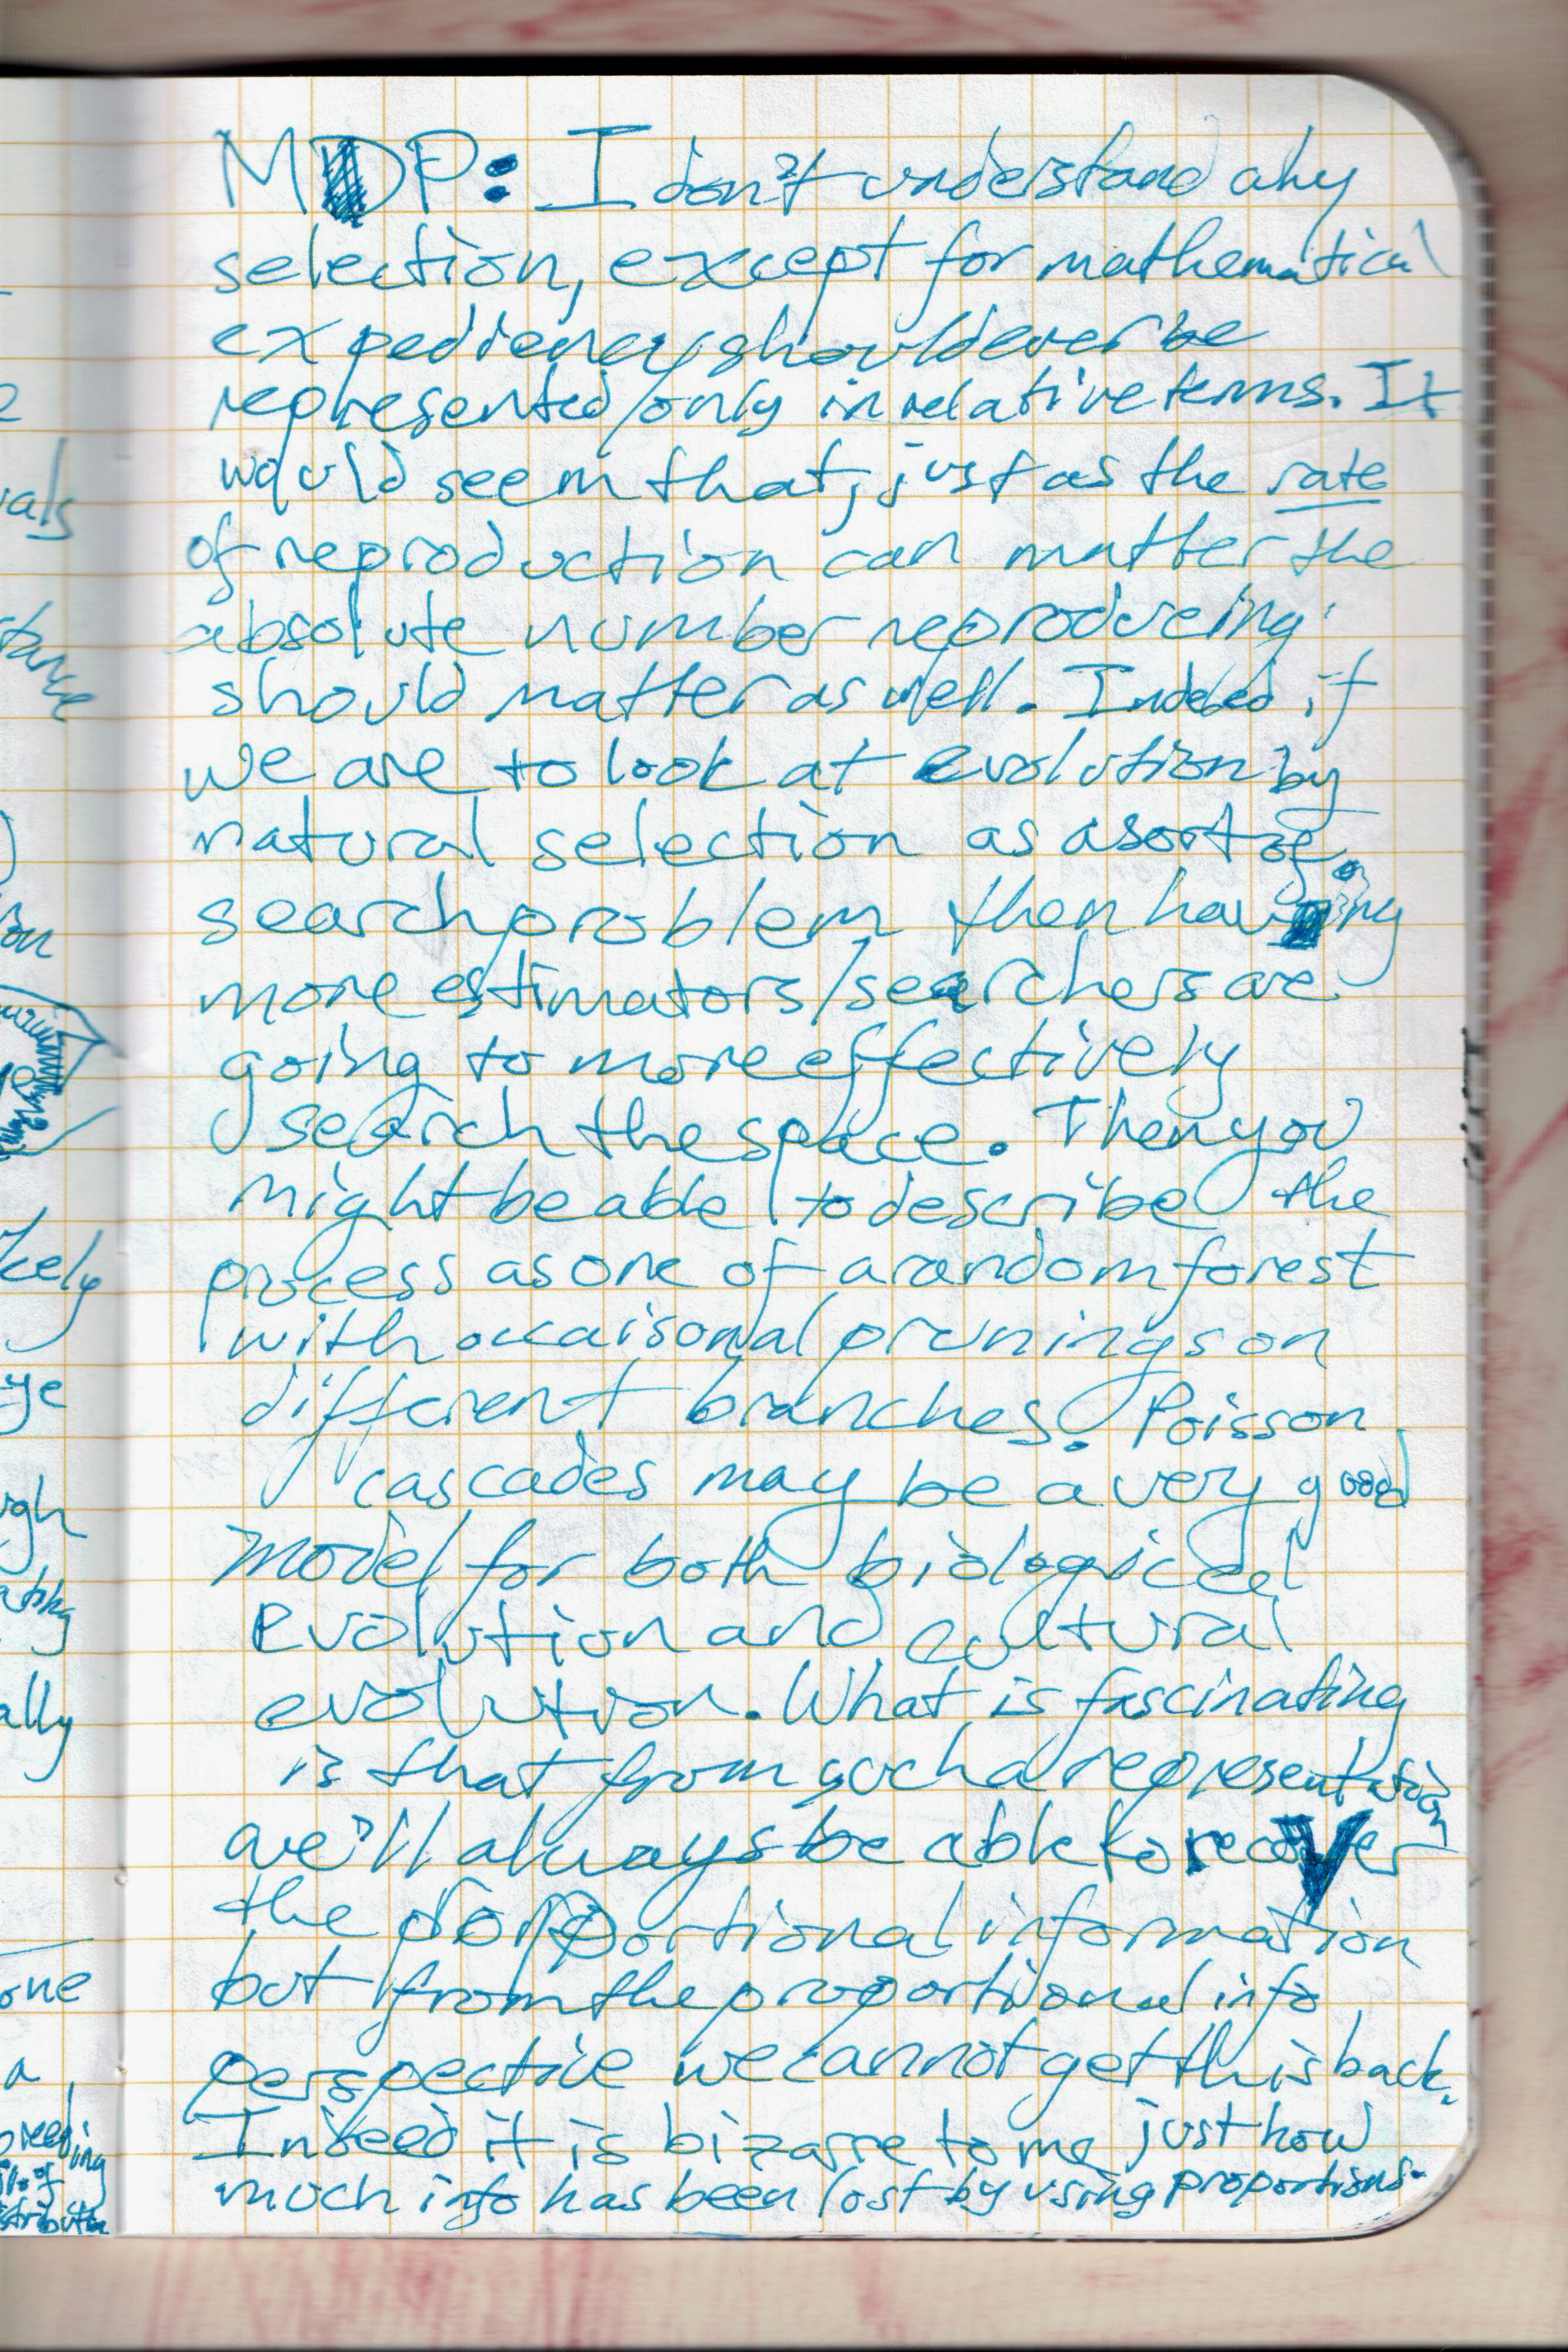 MDP: I don't understand why
selection, except for mathematical
expediency should ever be
represented only in relative terms. It
would seem that, just as the rate
of reproduction can matter the
absolute number reproducing
should matter as well. Indeed if
we are to look at evolution by
natural selection as a sort of
search problem then having
more estimators/searchers are
going to more effectively
search the space. Then you
might be able to describe the
process as one of a random forest
with occaisonal prunings on
different branches. Poisson
cascades may be a very good
model for both biological
evolution and cultural
evolution. What is fascinating
is that from such a representation
we'll always be able to recover
the proportional information
but from the proportional info
perspective we cannot get this back.
Indeed it is bizarre to me just how
much info has been lost by using proportions.